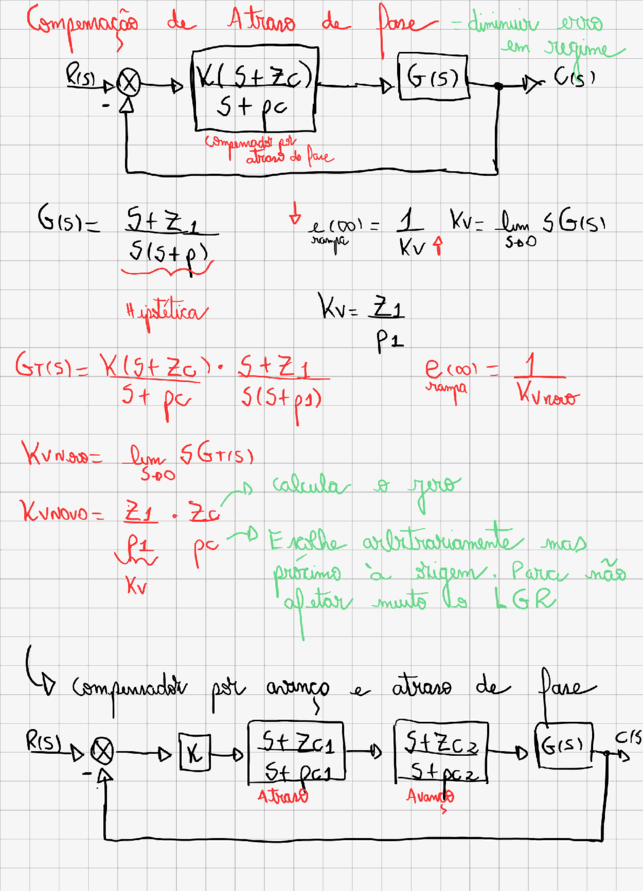 Compensação de Atraso de fase = diminuir erro
em regime
R(s) K(S+Zc) G(S) C(s)
-
S+pc
compensador por
atraso de fase
G(s)= S+Z1
S(S+p)
Hipotética
e(∞) = 1 Kv= lim SG(s)
rampa Kv S→0
Kv= Z1
p1
GT(s)= K(S+Zc) . S+Z1
S+pc S(S+p1)
e(∞) = 1
rampa Kvnovo
Kvnovo= lim SGT(s)
S→0
KvNOVO= Z1 . Zc → calcula o zero
p1 pc → Escolhe arbitrariamente mas
Kv próximo à origem. Para não
afetar muito o LGR
↳ compensador por avanço e atraso de fase
R(s) K S+Zc1 S+Zc2 G(s) C(s)
-
S+pc1 S+pc2
Atraso Avanço